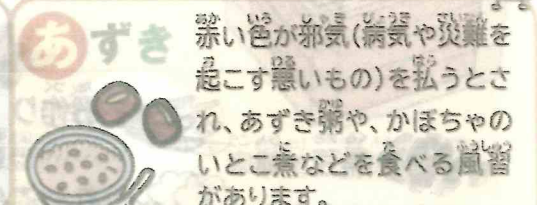 あずき
赤い色が邪気(病気や災難を
起こす悪いもの)を払うとさ
れ、あずき粥や、かぼちゃの
いとこ煮などを食べる風習
があります。